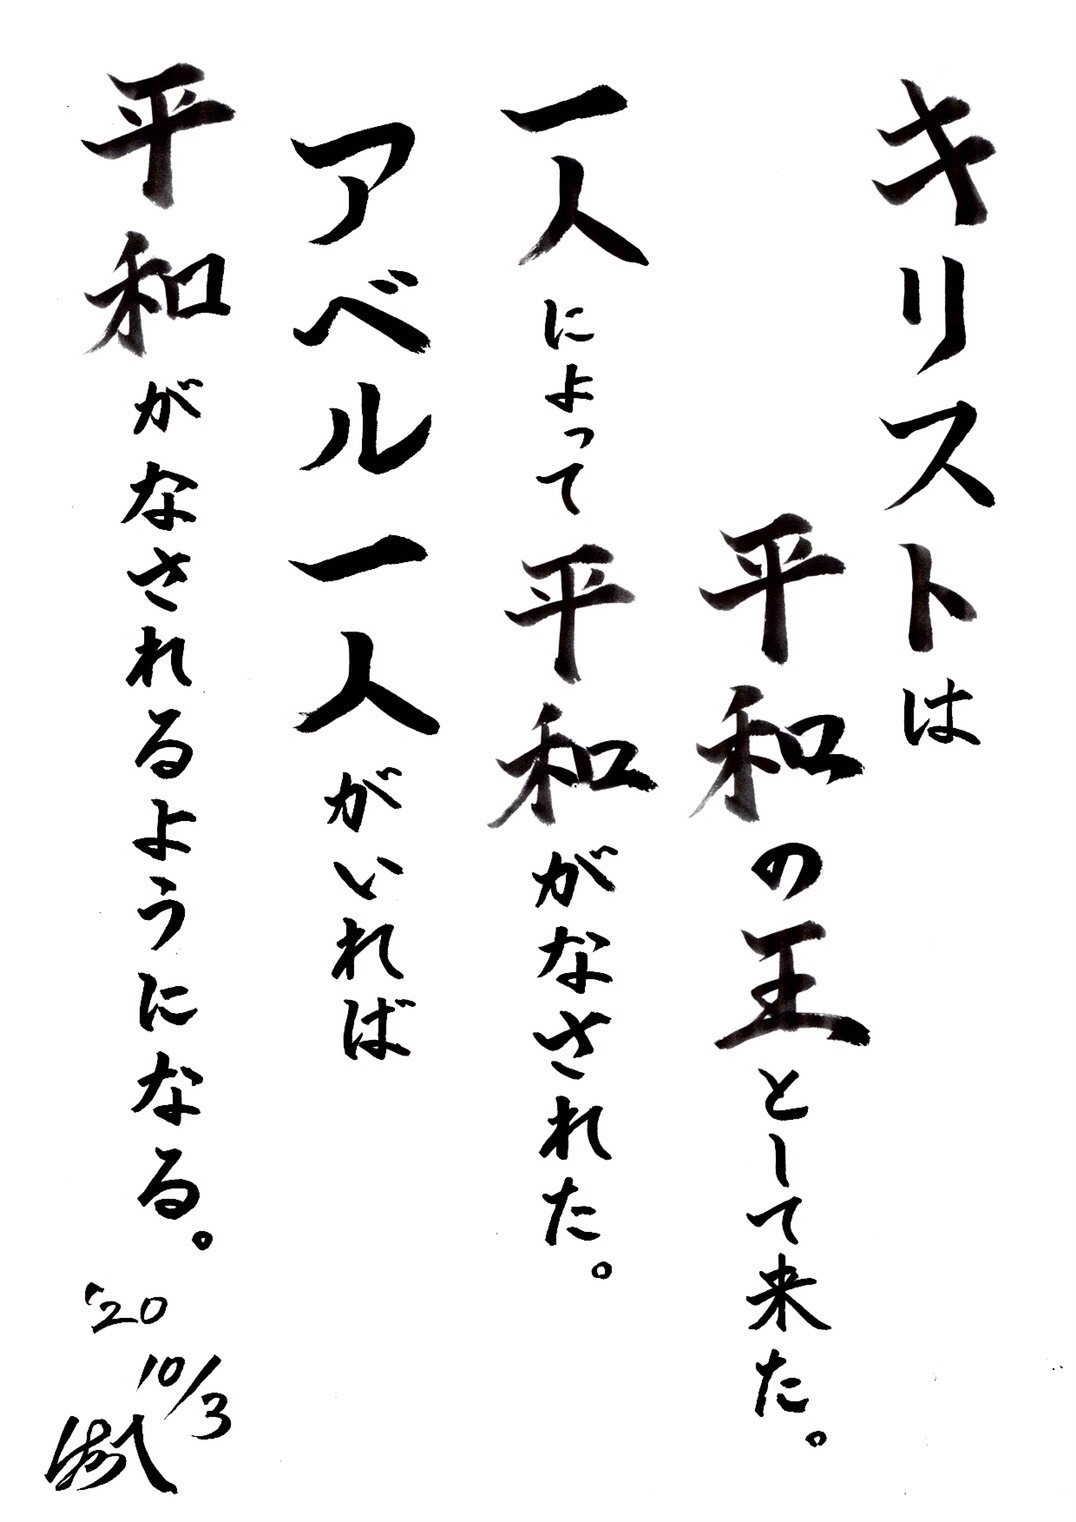 キリストは
平和の王として来た。
一人によって平和がなされた。
アベル一人がいれば
平和がなされるようになる。
'20
10/3